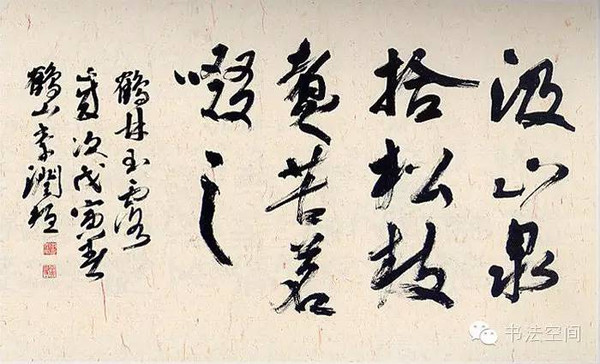 汲山泉
拾松枝
煮苦茗
啜之
鶴林玉露
歲次戊寅春
鶴山李潤桓
书法空间